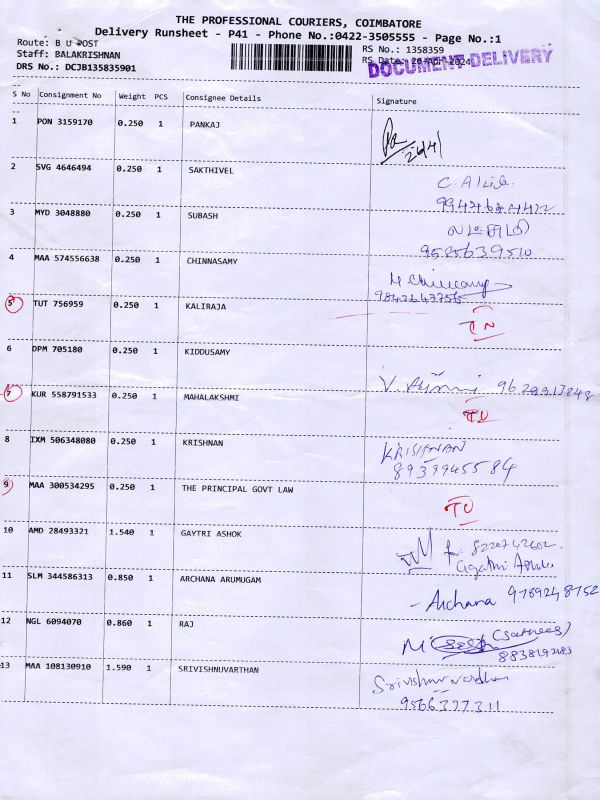 THE PROFESSIONAL COURIERS, COIMBATORE
Delivery Runsheet - P41 - Phone No.:0422-3505555 - Page No.:1
Route: B U POST
RS No.: 1358359
Staff: BALAKRISHNAN
RS Date: 26-Apr-2024
DRS No.: DCJB135835901
DOCUMENT DELIVERY
S No Consignment No Weight PCS Consignee Details Signature
1 PON 3159170 0.250 1 PANKAJ
26/4
2 SVG 4646494 0.250 1 SAKTHIVEL
3 MYD 3048880 0.250 1 SUBASH
9585639510
4 MAA 574556638 0.250 1 CHINNASAMY
9842643756
5 TUT 756959 0.250 1 KALIRAJA
6 DPM 705180 0.250 1 KIDDUSAMY
7 KUR 558791533 0.250 1 MAHALAKSHMI
8 IXM 506348080 0.250 1 KRISHNAN KRISHNAN
8939945584
9 MAA 300534295 0.250 1 THE PRINCIPAL GOVT LAW
10 AMD 28493321 1.540 1 GAYTRI ASHOK
for 8220742602
11 SLM 344586313 0.850 1 ARCHANA ARUMUGAM
- Archana 9789248752
12 NGL 6094070 0.860 1 RAJ
13 MAA 108130910 1.590 1 SRIVISHNUVARTHAN Srivishnuvardhan
9566377311